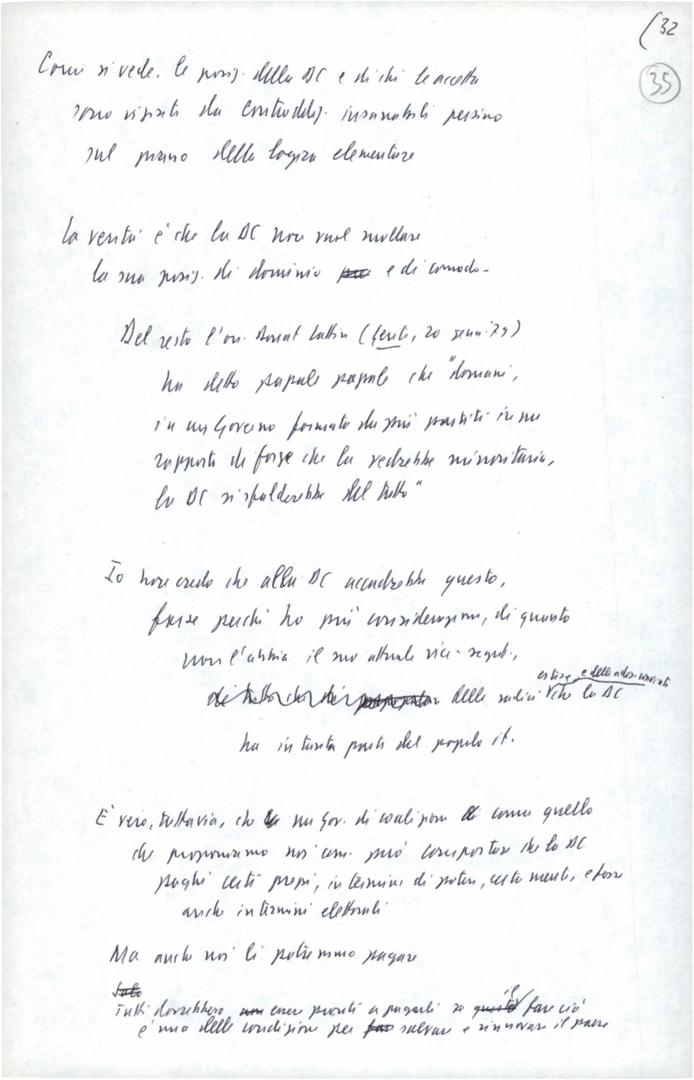 (32
35
Come si vede, le posiz. della DC e di chi le accetta
sono viziati da contraddiz. insanabili persino
sul piano della logica elementare
La verità è che la DC non vuol mollare
la sua posiz. di dominio e di comodo -
Del resto l'on. Donat Cattin (Gente, 20 genn. 79)
ha detto papale papale che "domani,
in un Governo formato da più partiti in un
rapporti di forze che la vedrebbe minoritaria,
la DC si sfalderebbe del tutto"
Io non credo che alla DC accadrebbe questo,
forse perché ho più considerazione, di quanto
non l'abbia il suo attuale vice-segret.,
estese e della adesi
delle radici che la DC
ha in tanta parte del popolo it.
È vero, tuttavia, che un Gov. di coalizione come quello
che proponiamo noi com. può comportare che la DC
paghi certi prezzi, in termini di potere, certamente, e forse
anche in termini elettorali
Ma anche noi li potremmo pagare
Solo
Tutti dovrebbero essere pronti a pagarli se il far ciò
è una delle condizione per salvare e rinnovare il paese